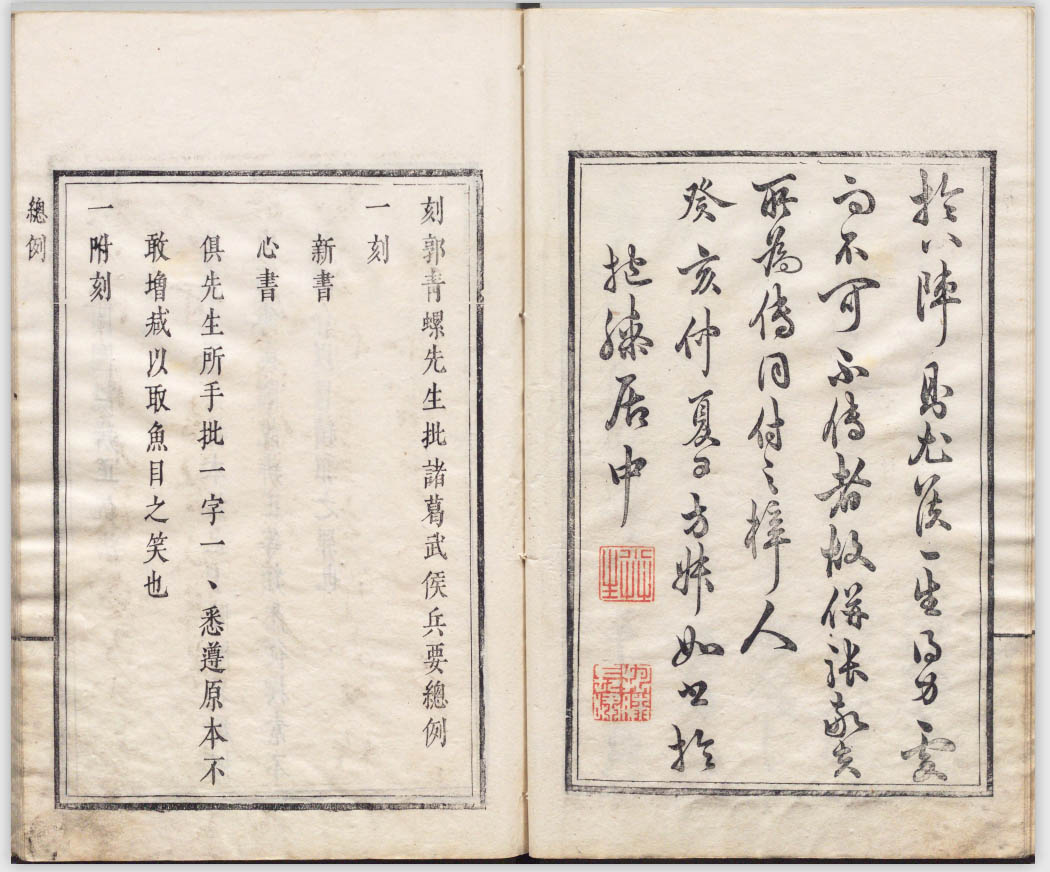 於八陣則尤侯一生得力處
而不可不傳者故併張敬夫
所為傳同付之梓人
癸亥仲夏日方如書於
抱膝居中
刻郭青螺先生批諸葛武侯兵要總例
一刻
新書
心書
俱先生所手批一字一、悉遵原本不
敢增減以取魚目之笑也
一附刻
總例